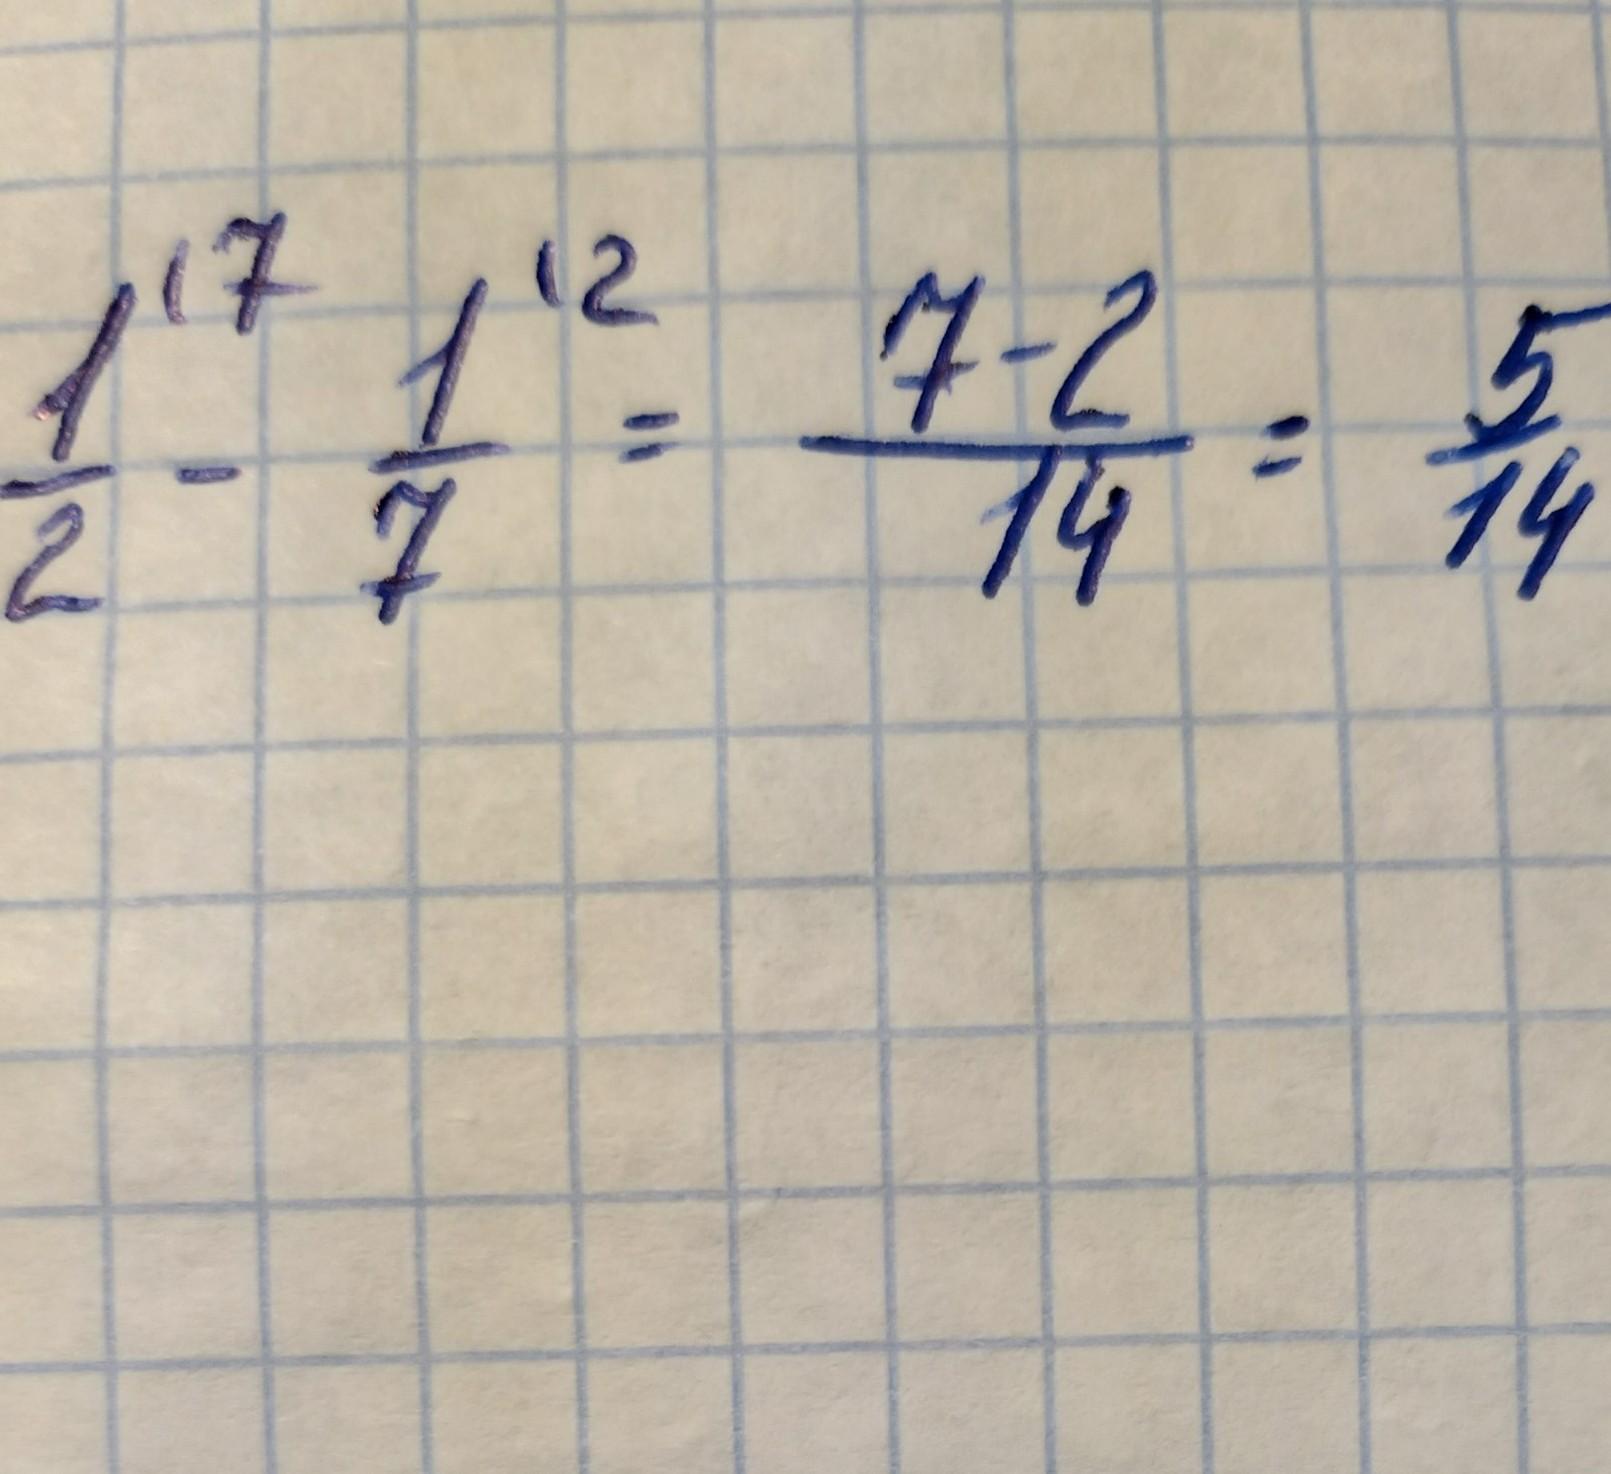 1/2 (7 - 1/7 (2 = 7-2/14 = 5/14